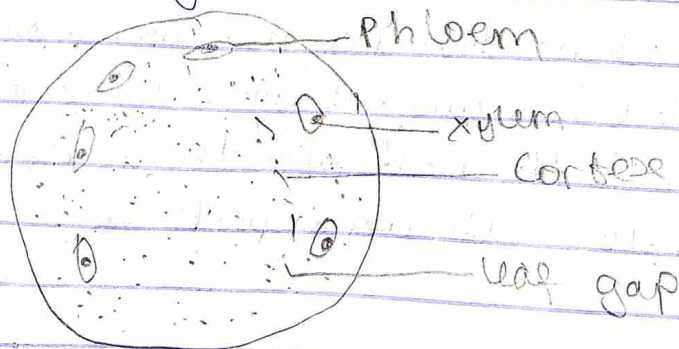 Phloem
xylem
Cortex
leaf gap